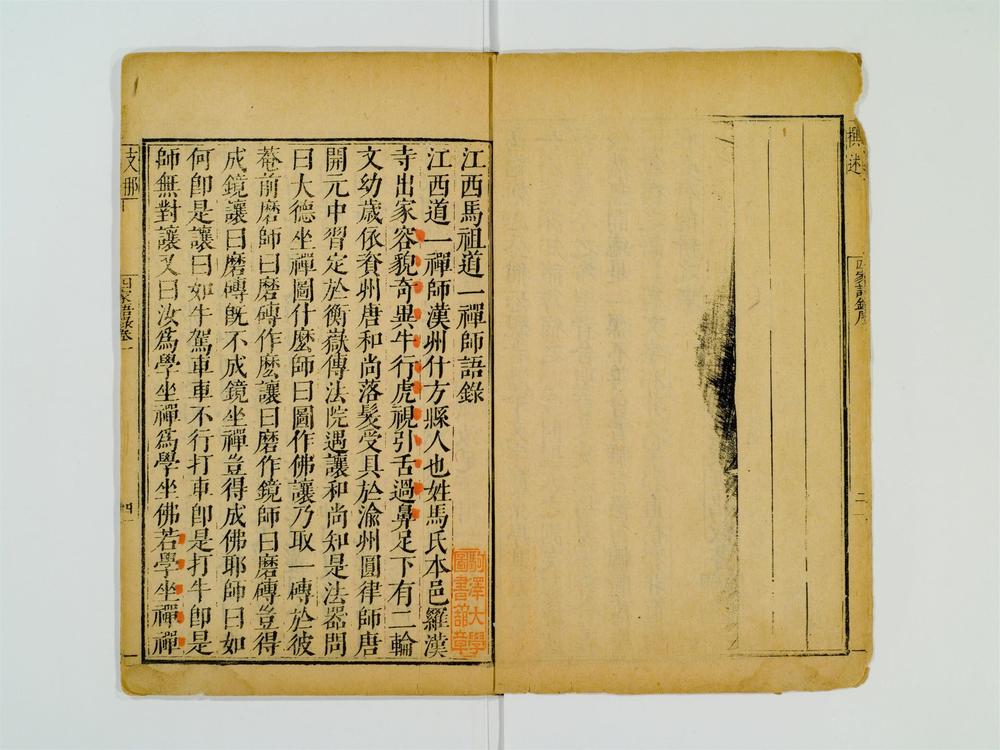 撰述
四家語錄序
二
江西馬祖道一禪師語錄
駒澤大學
圖書舘章
江西道一禪師漢州什方縣人也姓馬氏本邑羅漢
寺出家容貌奇異牛行虎視引舌過鼻足下有二輪
文幼歲依資州唐和尚落髮受具於渝州圓律師唐
開元中習定於衡嶽傳法院遇讓和尚知是法器問
曰大德坐禪圖什麽師曰圖作佛讓乃取一磚於彼
菴前磨師曰磨磚作麽讓曰磨作鏡師曰磨磚豈得
成鏡讓曰磨磚旣不成鏡坐禪豈得成佛耶師曰如
何卽是讓曰如牛駕車車不行打車卽是打牛卽是
師無對讓又曰汝爲學坐禪爲學坐佛若學坐禪禪
支那
四家語錄卷一
四